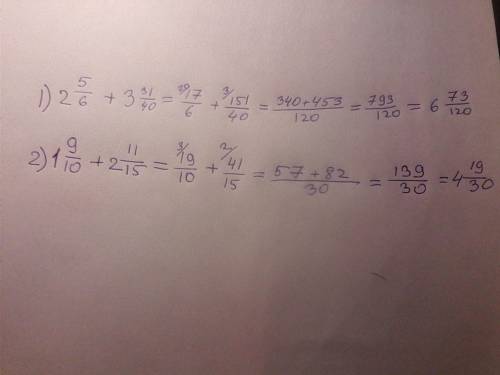 1) 2 5/6 + 3 31/40 = 20/ 17/6 + 3/ 151/40 = 340+453/120 = 793/120 = 6 73/120
2) 1 9/10 + 2 11/15 = 3/ 19/10 + 2/ 41/15 = 57+82/30 = 139/30 = 4 19/30